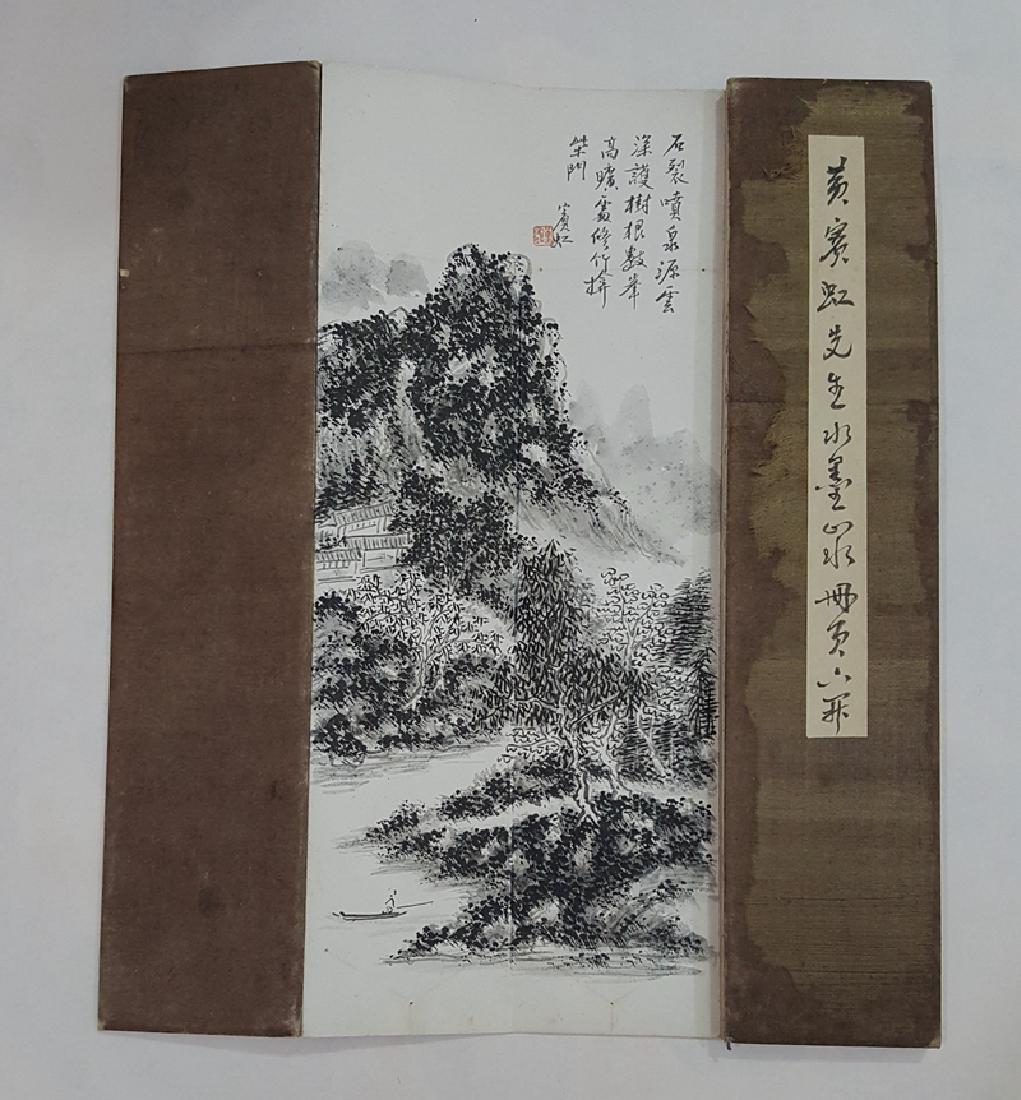 石裂噴泉源雲
深護樹根數峯
高曠處修竹拚
柴門
賓虹
黃賓虹先生水墨山水冊頁六開